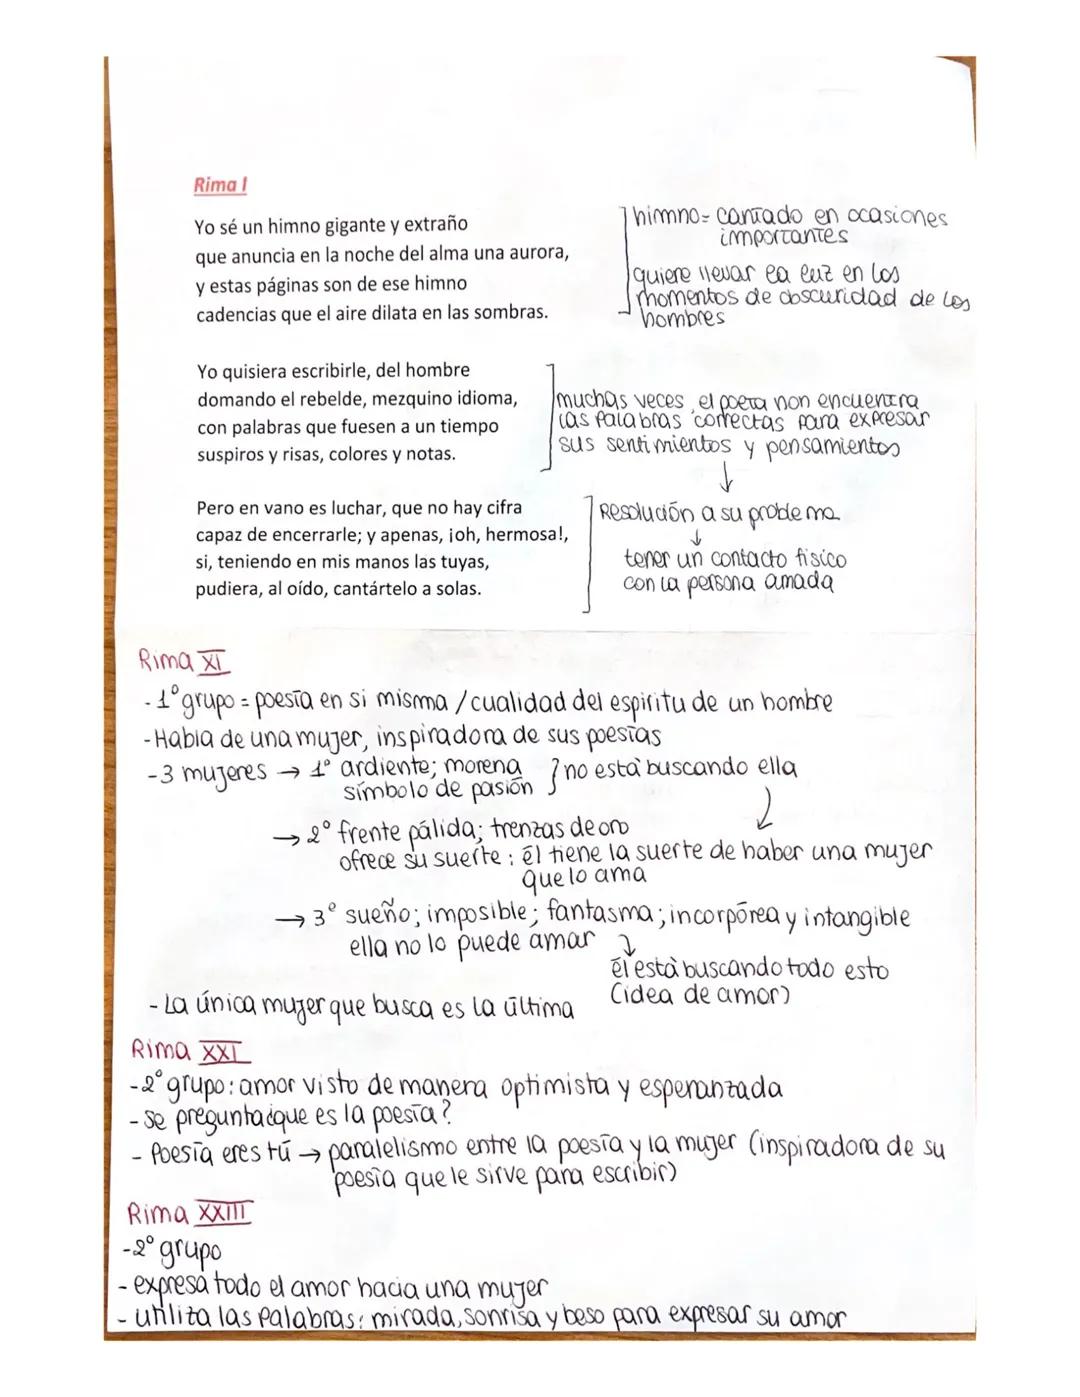 Rima I
Yo sé un himno gigante y extraño
que anuncia en la noche del alma una aurora,
y estas páginas son de ese himno
cadencias que el aire dilata en las sombras.
himno= cantado en ocasiones
importantes
quiere llevar la luz en los
momentos de obscuridad de los
hombres
Yo quisiera escribirle, del hombre
domando el rebelde, mezquino idioma,
con palabras que fuesen a un tiempo
suspiros y risas, colores y notas.
muchas veces, el poeta non encuentra
las palabras correctas para expresar
sus sentimientos y pensamientos
↓
Pero en vano es luchar, que no hay cifra
capaz de encerrarle; y apenas, ¡oh, hermosa!,
si, teniendo en mis manos las tuyas,
pudiera, al oído, cantártelo a solas.
Resolución a su problema
↓
tener un contacto fisico
con la persona amada
Rima XI
- 1º grupo = poesía en si misma / cualidad del espiritu de un hombre
- Habla de una mujer, inspiradora de sus poesías
- 3 mujeres → 1º ardiente; morena } no està buscando ella
símbolo de pasión
→ 2º frente pálida; trenzas de oro
ofrece su suerte: él tiene la suerte de haber una mujer
que lo ama
→ 3º sueño; imposible; fantasma; incorpórea y intangible
ella no lo puede amar
él està buscando todo esto
(idea de amor)
- La única mujer que busca es la última
Rima XXI
- 2º grupo: amor visto de manera optimista y esperanzada
- se pregunta ¿que es la poesía?
- Poesía eres tú → paralelismo entre la poesía y la mujer (inspiradora de su
poesía que le sirve para escribir)
Rima XXIII
- 2º grupo
- expresa todo el amor hacia una mujer
- utiliza las palabras: mirada, sonrisa y beso para expresar su amor